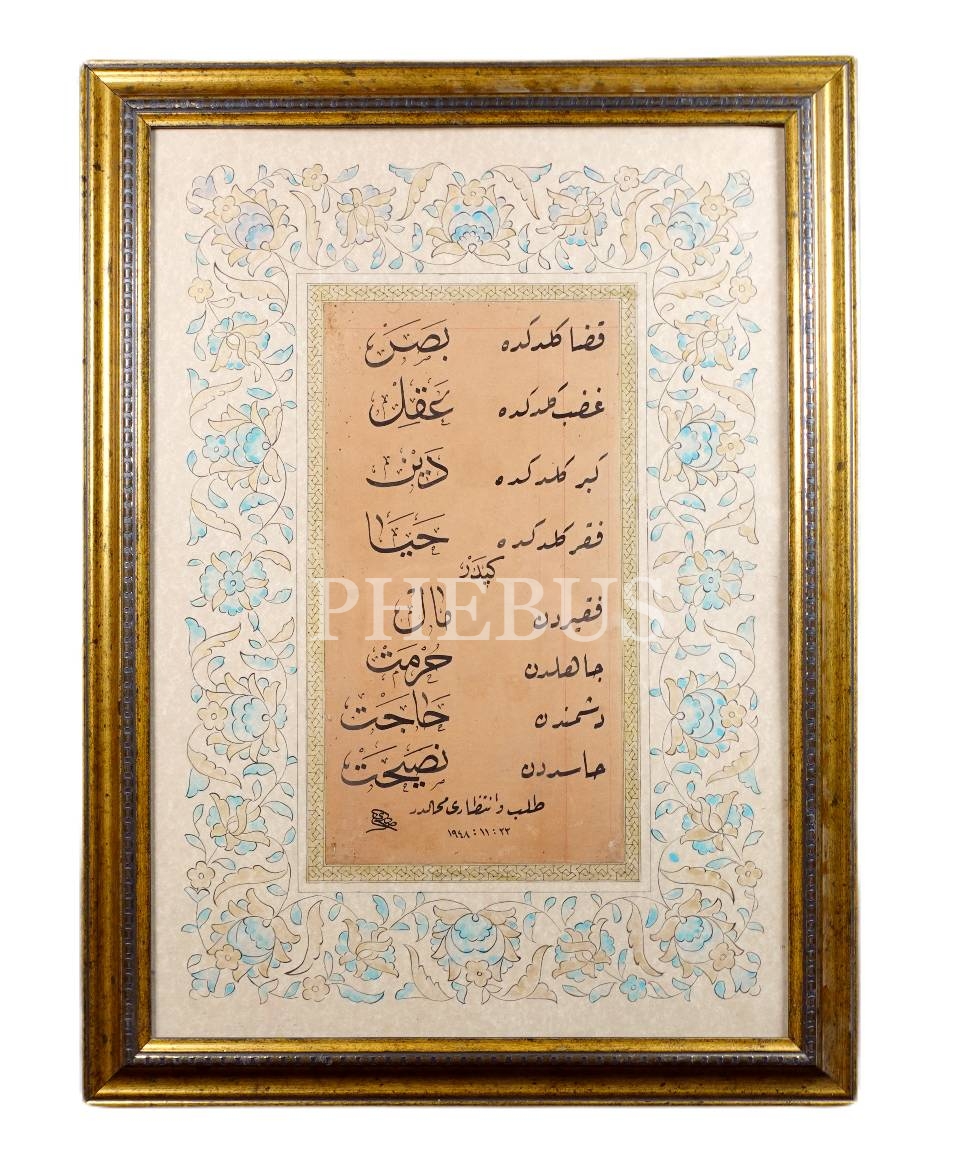 قضا كلدكده بَصَرْ
غضب كلدكده عَقِلْ
كبر كلدكده دَينْ
فقر كلدكده حَيَا
كيدَرْ
فقيردن مال
جاهلدن حُرْمَتْ
دشمندن حَاجَتْ
حاسددن نَصِيحَتْ
طلب و انتظاری محالدر
٢٣ : ١١ : ١٩٤٨
PHEBUS